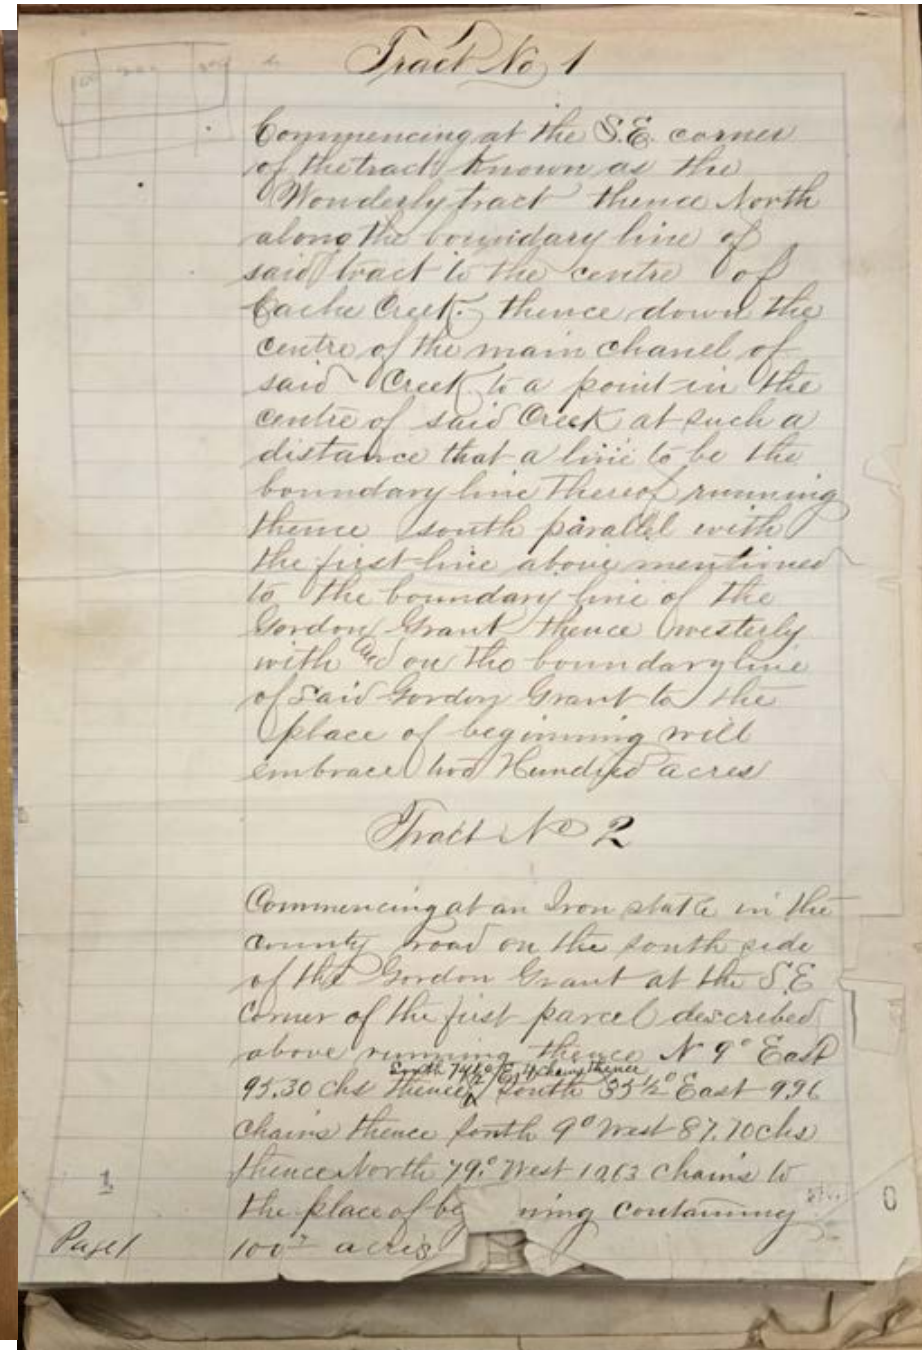 Tract No 1
Commencing at the S.E. corner
of the tract Known as the
Wonderly tract thence North
along the boundary line of
said tract to the centre of
Cache Creek. thence down the
centre of the main chanel of
said Creek to a point in the
centre of said Creek at such a
distance that a line to be the
boundary line thereof running
thence south parallel with
the first line above mentioned
to the boundary line of the
Gordon Grant thence westerly
with and on the boundary line
of said Gordon Grant to the
place of beginning will
embrace two Hundred acres
Tract No 2
Commencing at an Iron stake in the
county road on the south side
of the Gordon Grant at the S.E
corner of the first parcel described
above running thence N 9° East
South 74½° E, 4 chains thence
95.30 chs thence South 35½° East 9.96
chains thence South 9° West 87.70 chs
thence North 79° West 10.63 chains to
the place of be ning containing
100 acres
1
Page 1